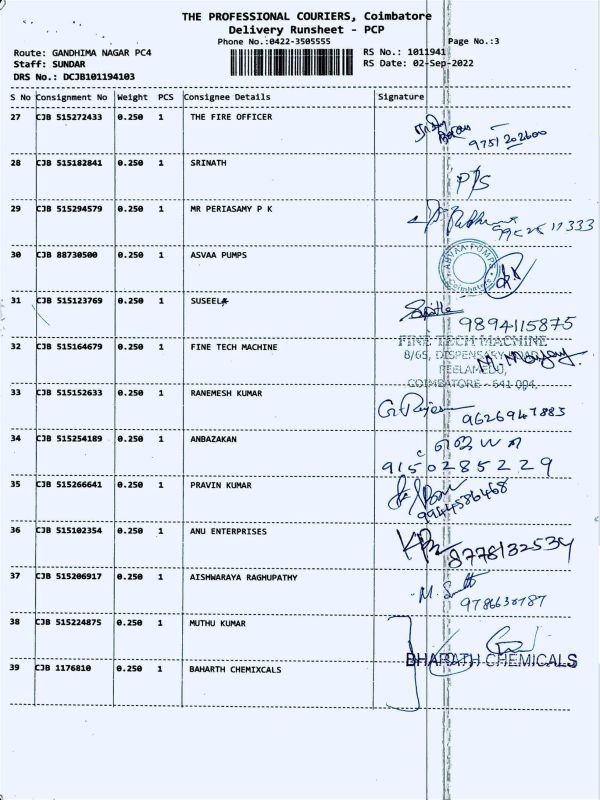 THE PROFESSIONAL COURIERS, Coimbatore
Delivery Runsheet - PCP
Phone No.:0422-3505555 Page No.:3
Route: GANDHIMA NAGAR PC4 RS No.: 1011941
Staff: SUNDAR RS Date: 02-Sep-2022
DRS No.: DCJB101194103
S No Consignment No Weight PCS Consignee Details Signature
27 CJB 515272433 0.250 1 THE FIRE OFFICER
9751202600
28 CJB 515182841 0.250 1 SRINATH
P/S
29 CJB 515294579 0.250 1 MR PERIASAMY P K
30 CJB 88730500 0.250 1 ASVAA PUMPS
ASVAA PUMPS Coimbatore
31 CJB 515123769 0.250 1 SUSEELA
9894115875
32 CJB 515164679 0.250 1 FINE TECH MACHINE
FINE TECH MACHINE
8/65, DISPENSARY ROAD,
PEELAMEDU,
COIMBATORE - 641 004.
33 CJB 515152633 0.250 1 RANEMESH KUMAR
9626947883
34 CJB 515254189 0.250 1 ANBAZAKAN
9150285229
35 CJB 515266641 0.250 1 PRAVIN KUMAR
9944586468
36 CJB 515102354 0.250 1 ANU ENTERPRISES
8778132534
37 CJB 515206917 0.250 1 AISHWARAYA RAGHUPATHY
9786630787
38 CJB 515224875 0.250 1 MUTHU KUMAR
39 CJB 1176810 0.250 1 BAHARTH CHEMIXCALS
BHARATH CHEMICALS